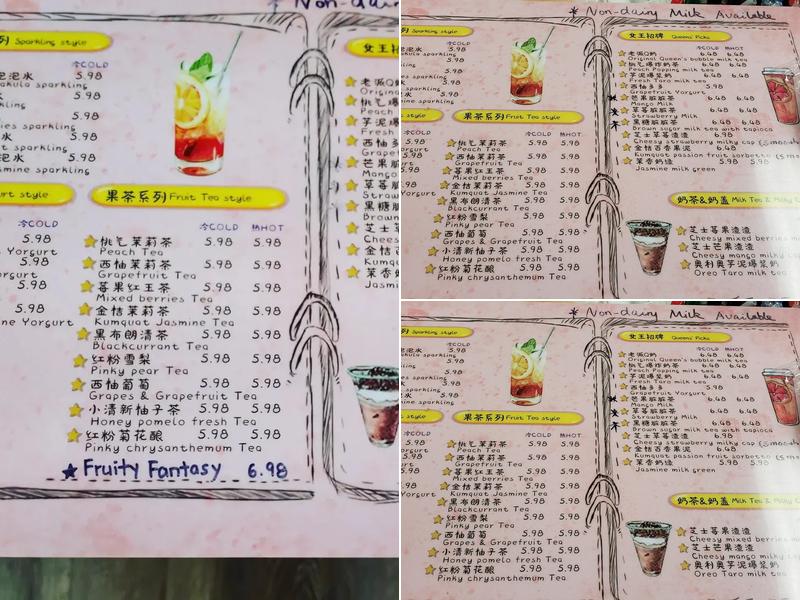 Sparkling style
女王招牌
冷COLD
5.98
5.98
5.98
5.98
5.98
5.98
果茶系列 Fruit Tea style
冷COLD 热HOT
5.98
5.98
5.98
5.98
桃乞茉莉茶 5.98 5.98
Peach Tea
西柚茉莉茶 5.98 5.98
Grapefruit Tea
莓果红王茶 5.98 5.98
Mixed berries Tea
金桔茉莉茶 5.98 5.98
Kumquat Jasmine Tea
黑布朗清茶 5.98 5.98
Blackcurrant Tea
红粉雪梨 5.98 5.98
Pinky pear Tea
西柚葡萄 5.98 5.98
Grapes & Grapefruit Tea
小清新柚子茶 5.98 5.98
Honey pomelo fresh Tea
红粉菊花酿 5.98 5.98
Pinky chrysanthemum Tea
★ Fruity Fantasy 6.98
* Non-dairy Milk Available
女王招牌 Queens' Picks
冷COLD 热HOT
老派Q奶 6.48 6.48
Original Queen's bubble milk tea
桃乞爆炸奶茶 6.48 6.48
Peach Popping milk tea
芋泥爆奶 6.48 6.48
Fresh Taro milk tea
西柚多多 5.98
Grapefruit Yorgurt
芒果脏脏茶 6.48 6.48
Mango Milk
草莓脏脏茶 6.48 6.48
Strawberry Milk
黑糖脏脏茶 6.48 6.48
Brown sugar milk tea with tapioca
芝士草莓茶
Cheesy strawberry milky cap
金桔百香果泥 6.48
Kumquat passion fruit sorbetto
茉香奶绿 5.98 5.98
Jasmine milk green
果茶系列 Fruit Tea style
冷COLD 热HOT
桃乞茉莉茶 5.98 5.98
Peach Tea
西柚茉莉茶 5.98 5.98
Grapefruit Tea
莓果红王茶 5.98 5.98
Mixed berries Tea
金桔茉莉茶 5.98 5.98
Kumquat Jasmine Tea
黑布朗清茶 5.98 5.98
Blackcurrant Tea
红粉雪梨 5.98 5.98
Pinky pear Tea
西柚葡萄 5.98 5.98
Grapes & Grapefruit Tea
小清新柚子茶 5.98 5.98
Honey pomelo fresh Tea
红粉菊花酿 5.98 5.98
Pinky chrysanthemum Tea
奶茶&奶盖 Milk Tea &
芝士莓果渣渣
Cheesy mixed berries
芝士芒果渣渣
Cheesy mango milky
奥利奥芋泥爆浆奶
Oreo Taro milk tea
* Non-dairy Milk Available
Sparkling style
女王招牌 Queens' Picks
冷COLD 热HOT
老派Q奶 6.48 6.48
Original Queen's bubble milk tea
桃乞爆炸奶茶 6.48 6.48
Peach Popping milk tea
芋泥爆浆奶 6.48 6.48
Fresh Taro milk tea
西柚多多 5.98
Grapefruit Yorgurt
芒果脏脏茶 6.48 6.48
Mango Milk
草莓脏脏茶 6.48 6.48
Strawberry Milk
黑糖脏脏茶 6.48 6.48
Brown sugar milk tea with tapioca
芝士草莓茶
Cheesy strawberry milky cap
金桔百香果泥 6.48
Kumquat passion fruit sorbetto
茉香奶绿 5.98 5.98
Jasmine milk green
果茶系列 Fruit Tea style
冷COLD 热HOT
桃乞茉莉茶 5.98 5.98
Peach Tea
西柚茉莉茶 5.98 5.98
Grapefruit Tea
莓果红王茶 5.98 5.98
Mixed berries Tea
金桔茉莉茶 5.98 5.98
Kumquat Jasmine Tea
黑布朗清茶 5.98 5.98
Blackcurrant Tea
红粉雪梨 5.98 5.98
Pinky pear Tea
西柚葡萄 5.98 5.98
Grapes & Grapefruit Tea
小清新柚子茶 5.98 5.98
Honey pomelo fresh Tea
红粉菊花酿 5.98 5.98
Pinky chrysanthemum Tea
奶茶&奶盖 Milk Tea &
芝士莓果渣渣
Cheesy mixed berries
芝士芒果渣渣
Cheesy mango milky
奥利奥芋泥爆浆奶
Oreo Taro milk tea